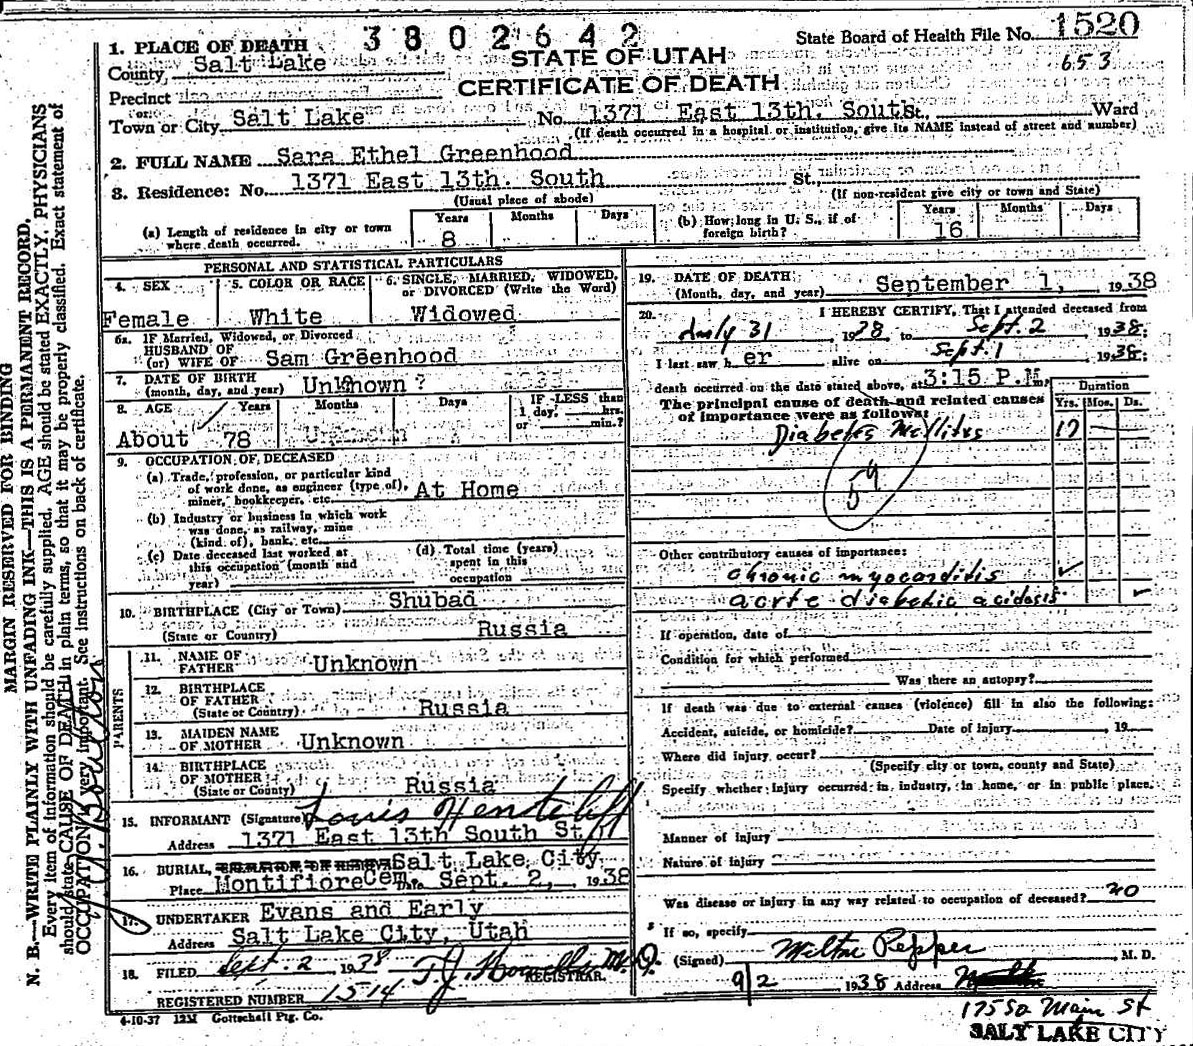 3802642
State Board of Health File No. 1520
653
STATE OF UTAH
CERTIFICATE OF DEATH
1. PLACE OF DEATH
County, Salt Lake
Precinct
or
Town or City Salt Lake No. 1371 East 13th. South St., Ward
(If death occurred in a hospital or institution, give its NAME instead of street and number)
2. FULL NAME Sara Ethel Greenhood
3. Residence: No. 1371 East 13th. South St.,
(Usual place of abode) (If non-resident give city or town and State)
(a) Length of residence in city or town where death occurred. Years 8 Months Days
(b) How long in U. S., if of foreign birth? Years 16 Months Days
PERSONAL AND STATISTICAL PARTICULARS
4. SEX Female
5. COLOR OR RACE White
6. SINGLE, MARRIED, WIDOWED, or DIVORCED (Write the Word) Widowed
6a. IF Married, Widowed, or Divorced
HUSBAND OF
(or) WIFE OF Sam Greenhood
7. DATE OF BIRTH
(month, day, and year) Unknown ?
8. AGE Years Months Days IF LESS than
1 day, hrs.
or min.?
About 78
9. OCCUPATION OF DECEASED
(a) Trade, profession, or particular kind
of work done, as engineer (type of),
miner, bookkeeper, etc. At Home
(b) Industry or business in which work
was done, as railway, mine
(kind of), bank, etc.
(c) Date deceased last worked at
this occupation (month and
year)
(d) Total time (years)
spent in this
occupation
10. BIRTHPLACE (City or Town) Shubad
(State or Country) Russia
PARENTS
11. NAME OF
FATHER Unknown
12. BIRTHPLACE
OF FATHER
(State or Country) Russia
13. MAIDEN NAME
OF MOTHER Unknown
14. BIRTHPLACE
OF MOTHER
(State or Country) Russia
15. INFORMANT (Signature) Louis
Address 1371 East 13th South St.
16. BURIAL, Salt Lake City
Place Montifiore Cem. Date Sept. 2, 1938
17. UNDERTAKER Evans and Early
Address Salt Lake City, Utah
18. FILED Sept. 2 1938 T.J. Howells M.D.
REGISTRAR.
REGISTERED NUMBER 1514
4-10-37 12M Gottschall Ptg. Co.
19. DATE OF DEATH
(Month, day, and year) September 1, 1938
20. I HEREBY CERTIFY, That I attended deceased from
July 31 1938 to Sept. 2 1938
I last saw her alive on Sept. 1 1938
death occurred on the date stated above, at 3:15 P.M. m.
The principal cause of death and related causes
of importance were as follows:
Duration
Yrs. Mos. Ds.
Diabetes Mellitus 17
59
Other contributory causes of importance:
chronic myocarditis ✓
acute diabetic acidosis ✓
If operation, date of
Condition for which performed
Was there an autopsy?
If death was due to external causes (violence) fill in also the following:
Accident, suicide, or homicide? Date of injury 19
Where did injury occur?
(Specify city or town, county and State)
Specify whether injury occurred in industry, in home, or in public place.
Manner of injury
Nature of injury
Was disease or injury in any way related to occupation of deceased? no
If so, specify
(Signed) Milton Pepper M. D.
9/2 1938 Address
175 So Main St
SALT LAKE CITY
MARGIN RESERVED FOR BINDING
N. B.—WRITE PLAINLY WITH UNFADING INK—THIS IS A PERMANENT RECORD.
Every item of information should be carefully supplied. AGE should be stated EXACTLY. PHYSICIANS
should state CAUSE OF DEATH in plain terms, so that it may be properly classified. Exact statement of
OCCUPATION is very important. See instructions on back of certificate.